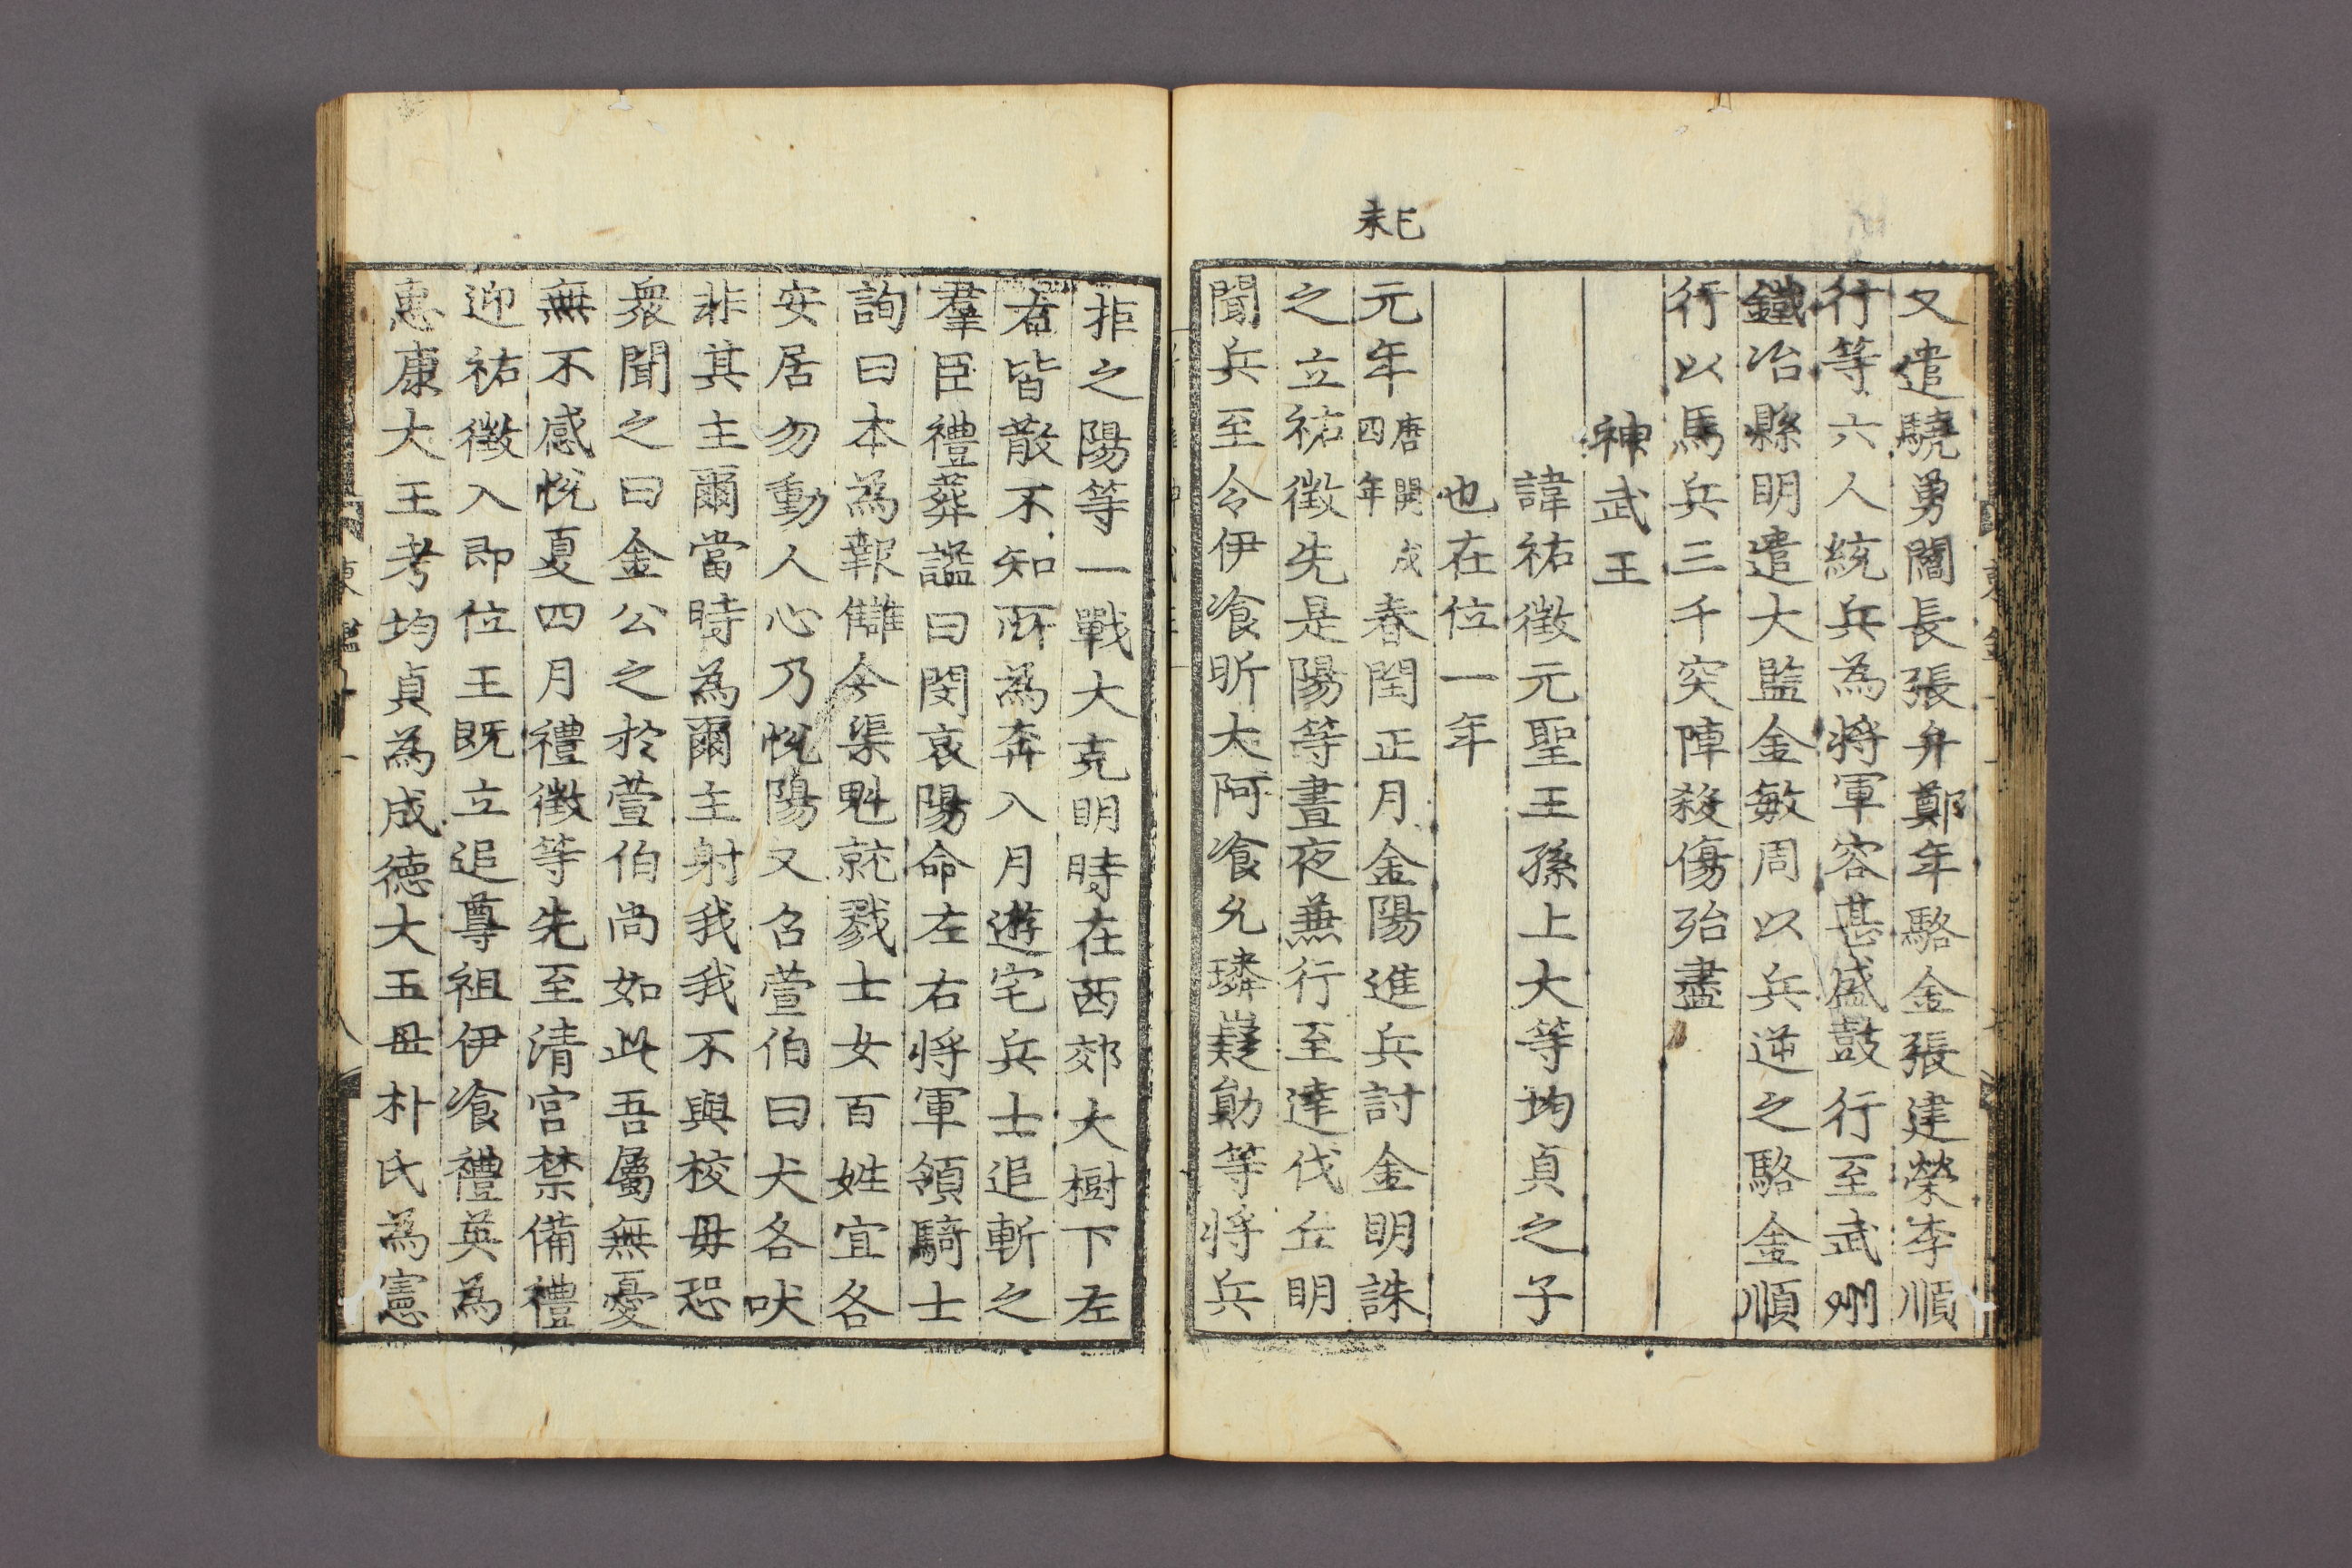 又遣驍勇閻長張弁鄭年駱金張建榮李順
行等六人統兵為將軍容甚盛鼓行至武州
鐵冶縣明遣大監金敏周以兵逆之駱金順
行以馬兵三千突陣殺傷殆盡
神武王
諱祐徵元聖王孫上大等均貞之子
也在位一年
己未
元年唐開成四年春閏正月金陽進兵討金明誅
之立祐徵先是陽等晝夜兼行至達伐丘明
聞兵至令伊飡昕大阿飡允璘嶷勛等將兵
拒之陽等一戰大克明時在西郊大樹下左
右皆散不知所為奔入月遊宅兵士追斬之
羣臣禮葬謚曰閔哀陽命左右將軍領騎士
詢曰本為報讎今渠魁就戮士女百姓宜各
安居勿動人心乃悅陽又召萱伯曰犬各吠
非其主爾當時為爾主射我我不與校毋恐
衆聞之曰金公之於萱伯尚如此吾屬無憂
無不感悅夏四月禮徵等先至清宮禁備禮
迎祐徵入即位王既立追尊祖伊飡禮英為
惠康大王考均貞為成德大王母朴氏為憲